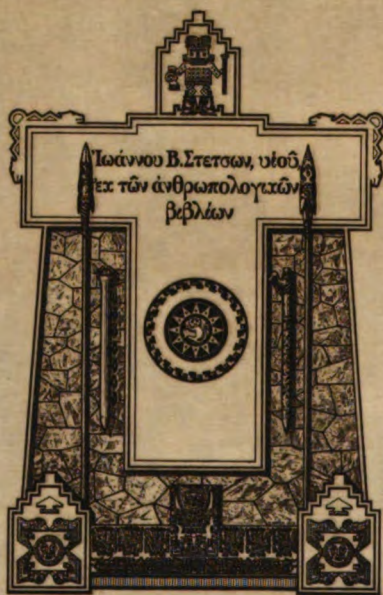 Ἰωάννου Β.Στετσων, υἱοῦ,
ἐκ τῶν ἀνθρωπολογικῶν
βεβλέων